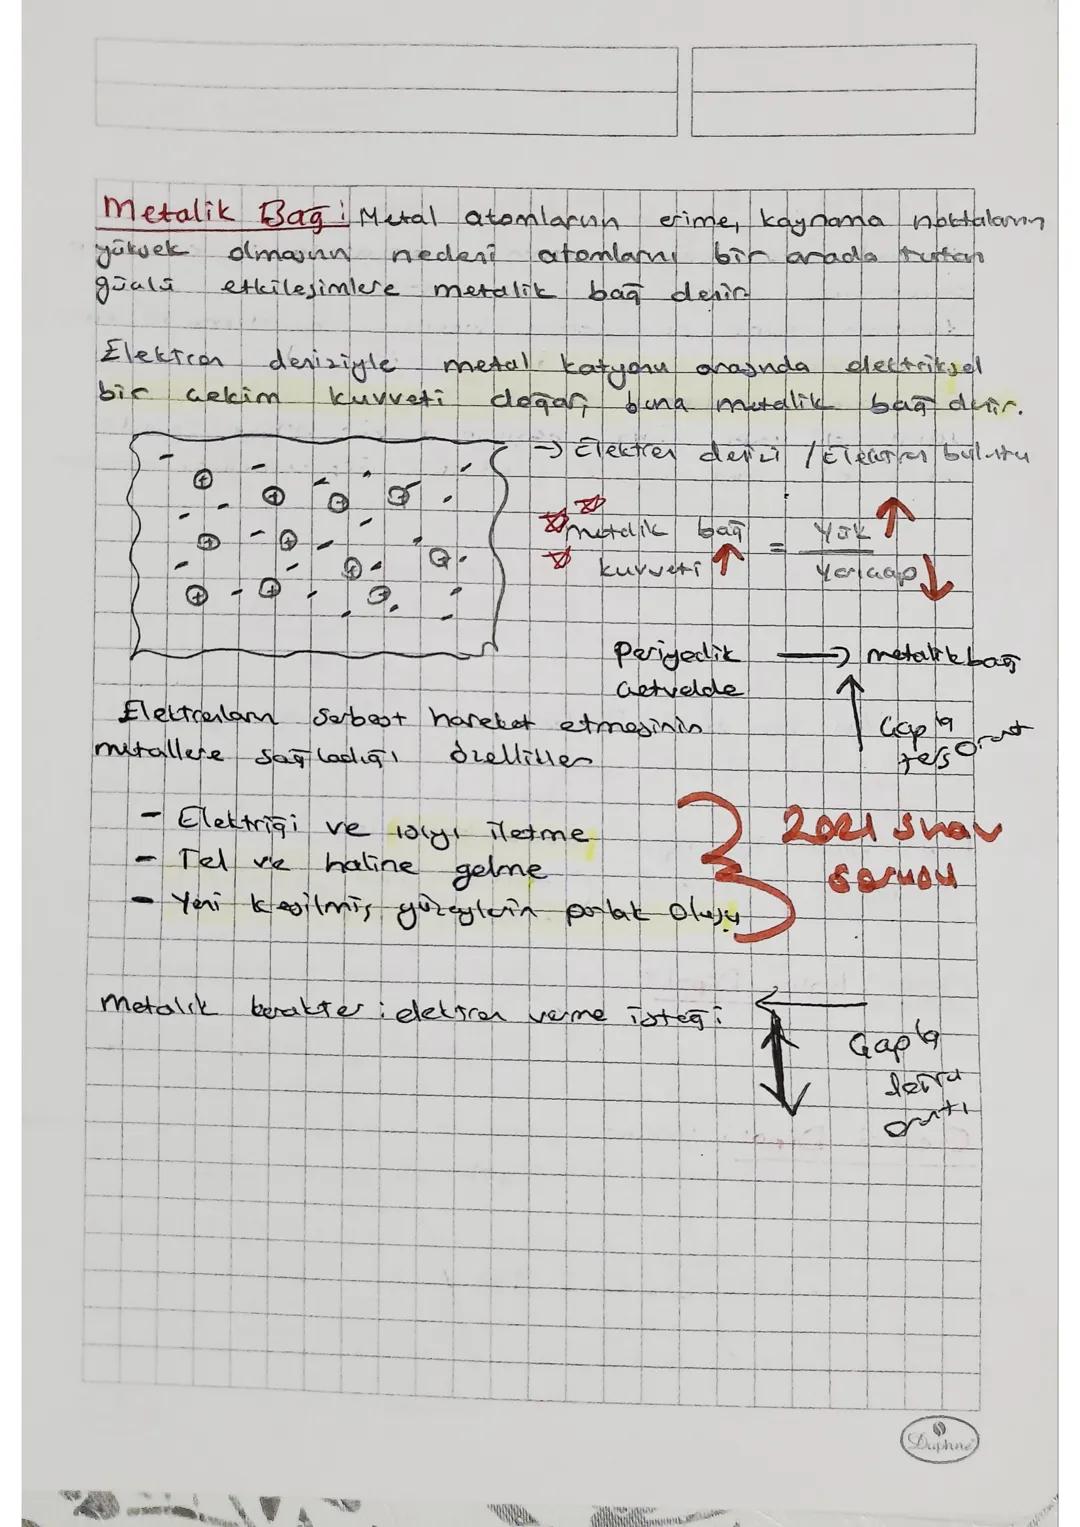 Metalik Bağ : Metal atomlarının erime, kaynama noktalarının
yüksek olmasının nedeni atomlarını bir arada tutan
güçlü etkileşimlere metalik bağ denir
Elektron deniziyle metal katyonu arasında elektriksel
bir çekim kuvveti doğar, buna metalik bağ denir.
→ Elektron denizi / Elektron bulutu
metalik bağ kuvveti ↑ = Yük ↑ / Yarıçap ↓
Periyodik cetvelde → metalik bağ
↑ Çap'la ters orantı
Elektronların serbest hareket etmesinin
metallere sağladığı özellikler
- Elektriği ve ısıyı iletme
- Tel ve haline gelme
- Yeni kesilmiş yüzeylerin parlak oluşu
2021 sınav
sorusu
Metalik karakter : elektron verme isteği
Çap'la
doğru
orantı
Daphne